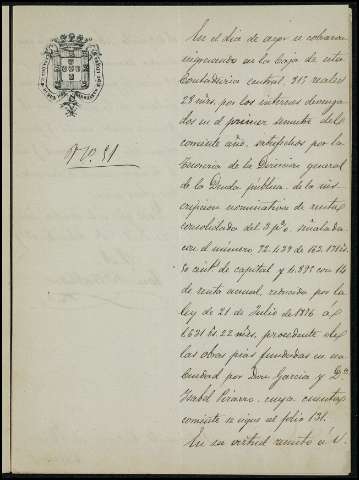 Nº. 51
En el dia de ayer se cobraron
ingresando en la Caja de esta
Contaduria central 815 reales
28 mrs. por los intereses devenga
dos en el primer semestre del
corriente año, satisfechos por la
Tesoreria de la Direccion general
de la Deuda publica, de la ins
cripcion nominativa de renta
consolidada del 3 p%. señalada
con el número 72.439 de 162.
cints de capital y 4.892 con 14
de renta anual, reducida por la
Ley de 21 de Julio de 1876 á
1.631 rs. 22 mrs, procedente de
las obras pias fundadas en esa
Ciudad por Don Garcia y Dª
Isabel Pizarro, cuya cuenta
corriente se sigue al folio 131.
En su virtud remito á V.